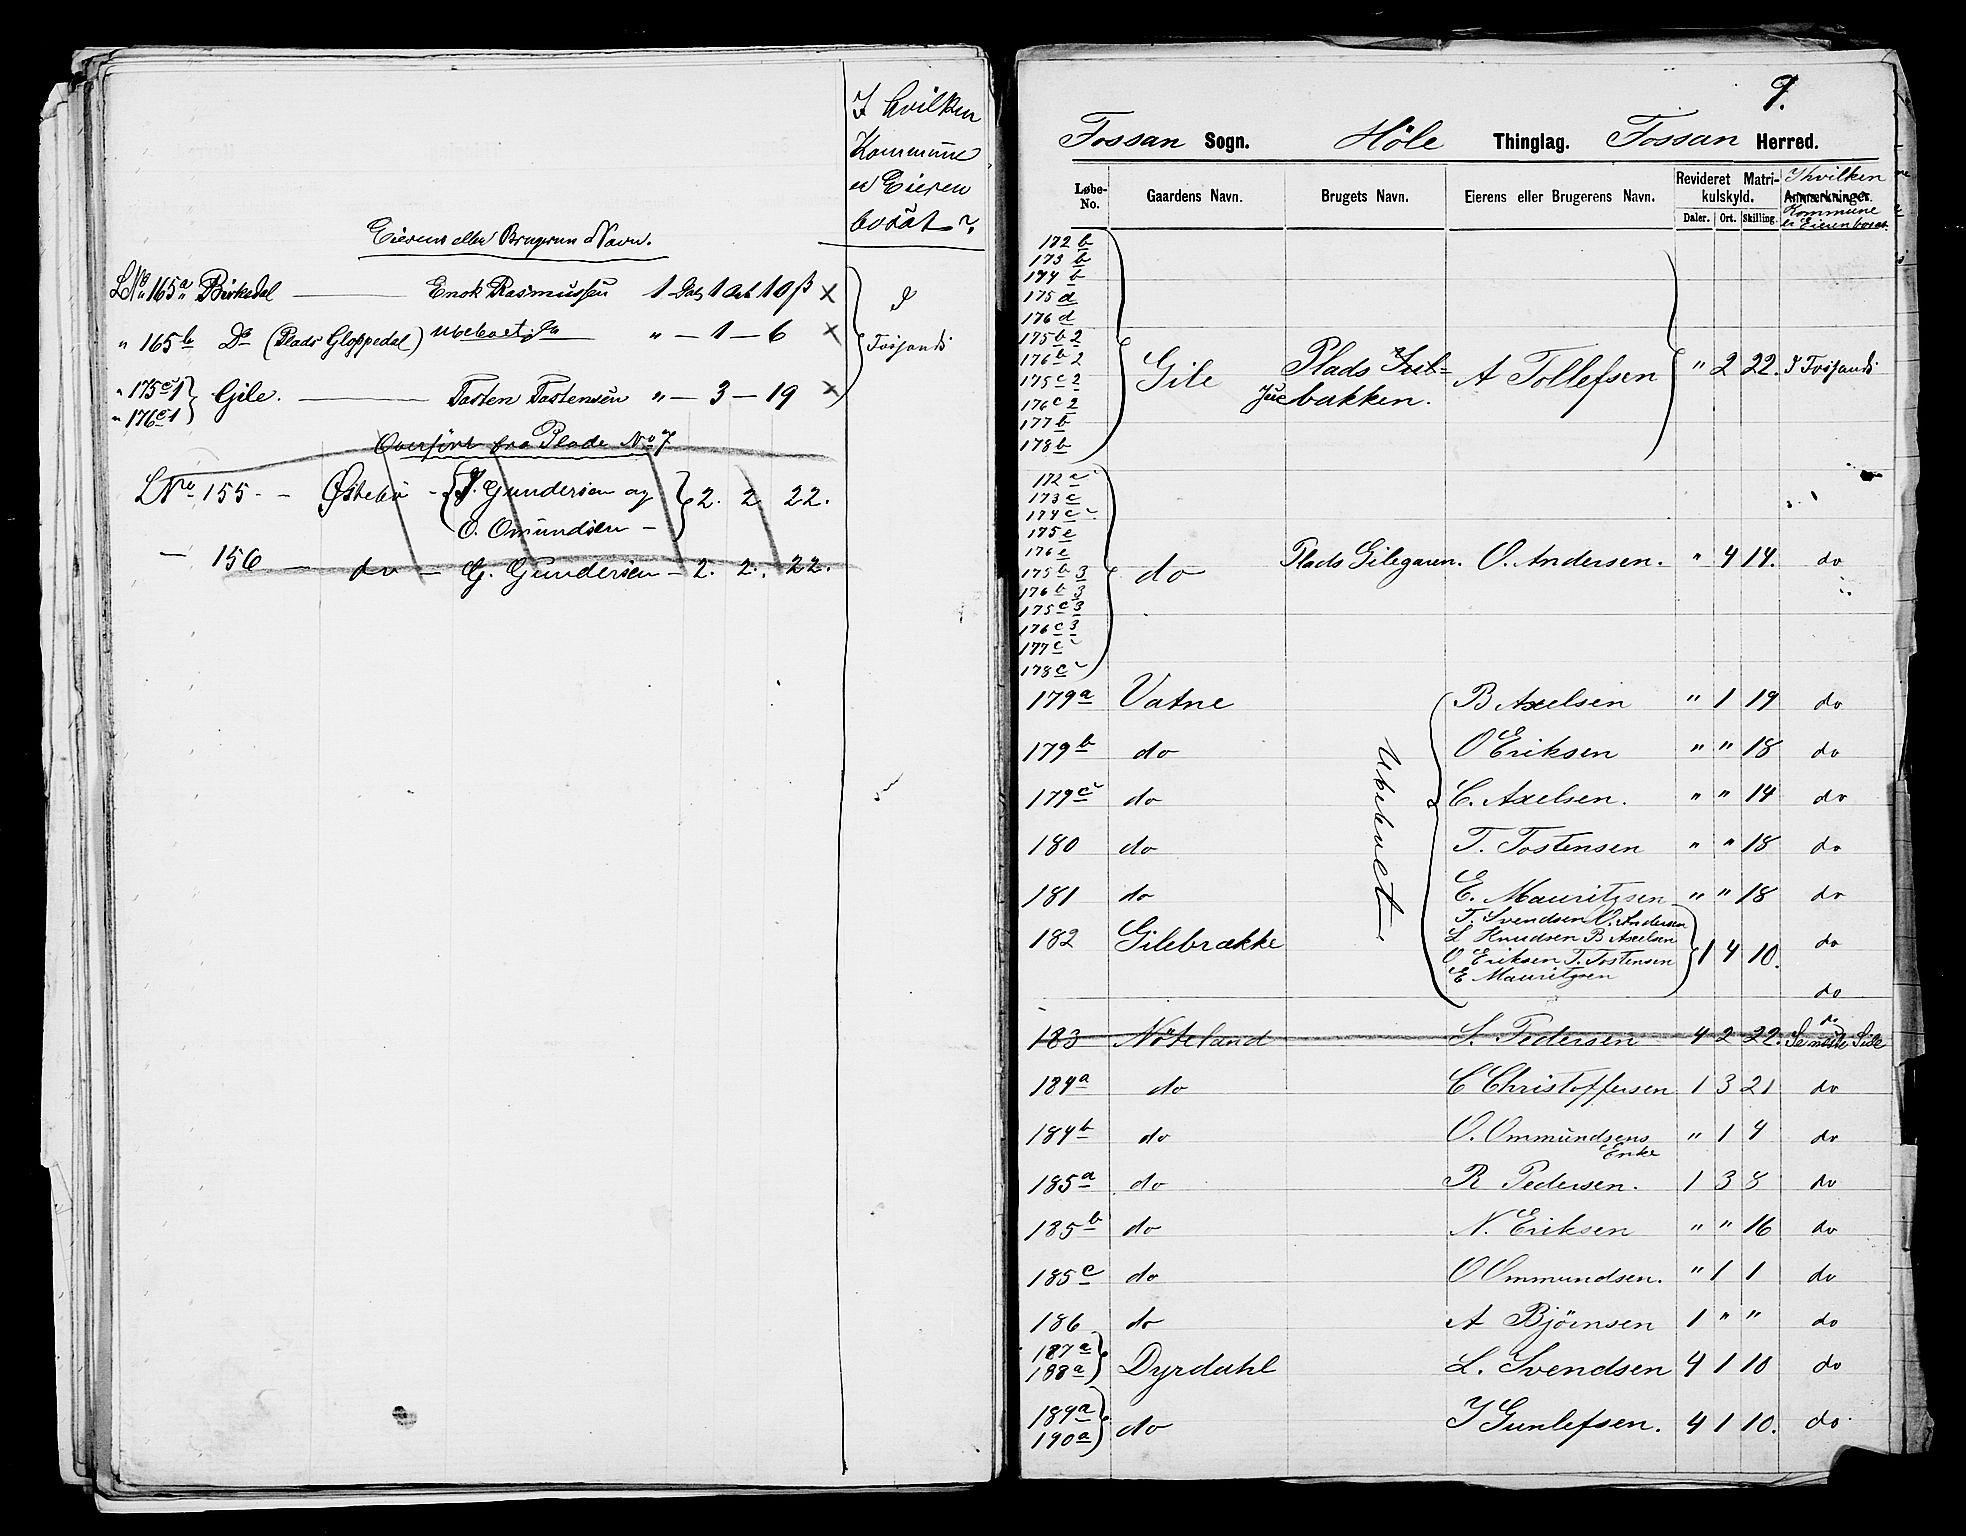 I hvilken
Kommune
er Eieren
bosat?
Eierens eller Brugerens Navn.
LNo 165a Birkedal — Enok Rasmussen 1 Dal 1 Ort 10 ß ×
" 165b Do (Plads Gloppedal) Ubeboet " — 1 — 6 × I Fossands
" 175c1 Gile. — Tosten Tostensen " — 3 — 19 ×
" 176c1
Overført fra Plade No 7
LNro 155 - - Østebø - J. Gundersen og 2. 2 22.
O. Omundsen -
— 156 — do — G. Gundersen - 2. 2. 22.
9.
Fossan Sogn. Höle Thinglag. Fossan Herred.
Løbe-No. Gaardens Navn. Brugets Navn. Eierens eller Brugerens Navn. Revideret Matrikulskyld. Daler. Ort. Skilling. Anmærkninger. I hvilken Kommune er Eieren bosat
172 b
173 b
174 b
175 d
176 d
175 b 2
176 b 2
175 c 2 Gile Plads Juubakken. A Tollefsen " 2 22. I Fossands
176 c 2
177 b
178 b
172 c
173 c
174 c
175 e
176 e
175 b 3 do Plads Gilegaren. O. Andersen. " 4 14. do
176 b 3
175 c 3
176 c 3
177 c
178 c
179 a Vatne B Axelsen " 1 19 do
179 b do O Eriksen " " 18 do
179 c do C. Axelsen. " " 14 do
180 do Ubeboet T. Tostensen " " 18 do
181 do E. Mauritzsen " " 18 do
182 Gilebrække T. Svendsen O. Andersen
L Knudsen B Axelsen
O Eriksen T. Tostensen 1 4 10. do
E Mauritzsen
do
183 Nöteland S. Pedersen 4 2 22. do Se næste Side
184 a do C Christoffersen 1 3 21 do
184 b do O. Ommundsens Enke " 1 4 do
185 a do R Pedersen. 1 3 8 do
185 b do N. Eriksen " " 16 do
185 c do O Ommundsen. " 1 1 do
186 do A Bjørnsen 1 " " do
187 a
188 a Dyrdahl L. Svendsen 4 1 10 do
189 a
190 a do J Gunlefsen. 4 1 10. do